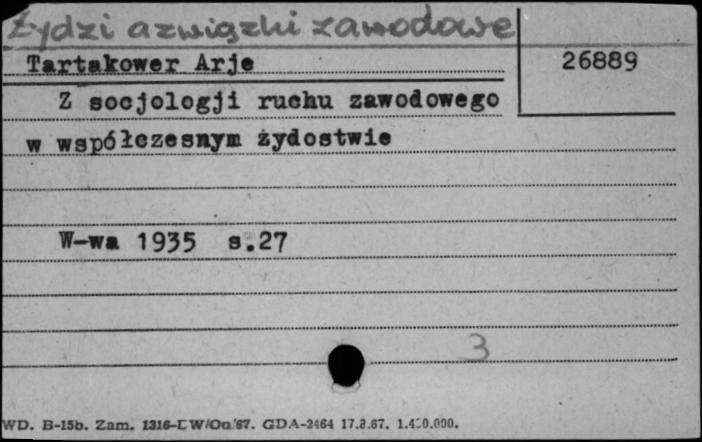 Żydzi a związki zawodowe
Tartakower Arje 26889
Z socjologji ruchu zawodowego
w współczesnym żydostwie
W-wa 1935 s.27
3
WD. B-15b. Zam. 1316-LW/Oa/67. GDA-2464 17.3.67.